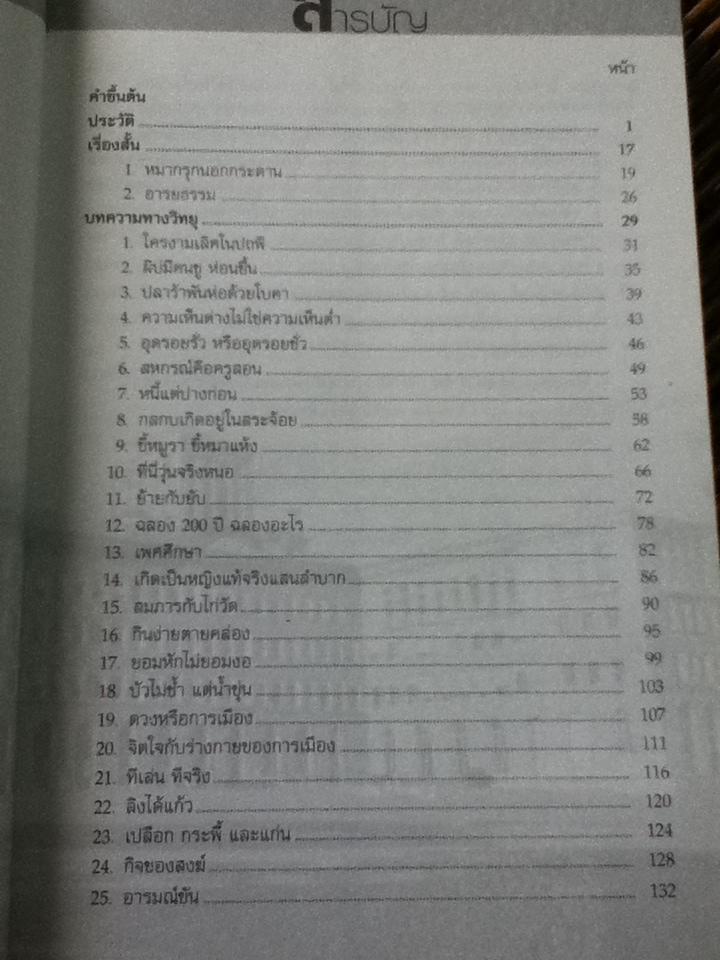 สารบัญ
หน้า
คำขึ้นต้น
ประวัติ 1
เรื่องสั้น 17
1 หมากรุกนอกกระดาน 19
2. อารยธรรม 26
บทความทางวิทยุ 29
1. ใครงามเลิศในปถพี 31
2. ผิบ่มีคนชู ห่อนขึ้น 35
3. ปลาร้าพันห่อด้วยใบคา 39
4. ความเห็นต่างไม่ใช่ความเห็นต่ำ 43
5. อุดรอยรั่ว หรืออุดรอยชั่ว 46
6. สหกรณ์คือครูสอน 49
7. หนี้แต่ปางก่อน 53
8. กลกบเกิดอยู่ในสระจ้อย 58
9. ขี้หมูรา ขี้หมาแห้ง 62
10. ที่นี่วุ่นจริงหนอ 66
11. ย้ายกับยับ 72
12. ฉลอง 200 ปี ฉลองอะไร 78
13. เพศศึกษา 82
14. เกิดเป็นหญิงแท้จริงแสนลำบาก 86
15. สมภารกับไก่วัด 90
16. กินง่ายตายคล่อง 95
17. ยอมหักไม่ยอมงอ 99
18. บัวไม่ช้ำ แต่น้ำขุ่น 103
19. ดวงหรือการเมือง 107
20. จิตใจกับร่างกายของการเมือง 111
21. ทีเล่น ทีจริง 116
22. ลิงได้แก้ว 120
23. เปลือก กระพี้ และแก่น 124
24. กิจของสงฆ์ 128
25. อารมณ์ขัน 132